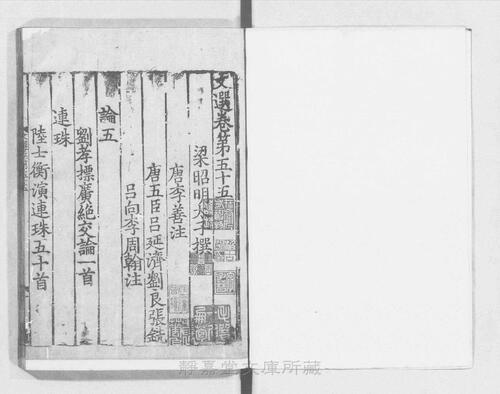 文選卷第五十五
梁昭明太子撰
唐李善注
唐五臣呂延濟劉良張銑
呂向李周翰注
論五
劉孝標廣絶交論一首
連珠
陸士衡演連珠五十首
靜嘉堂文庫所藏